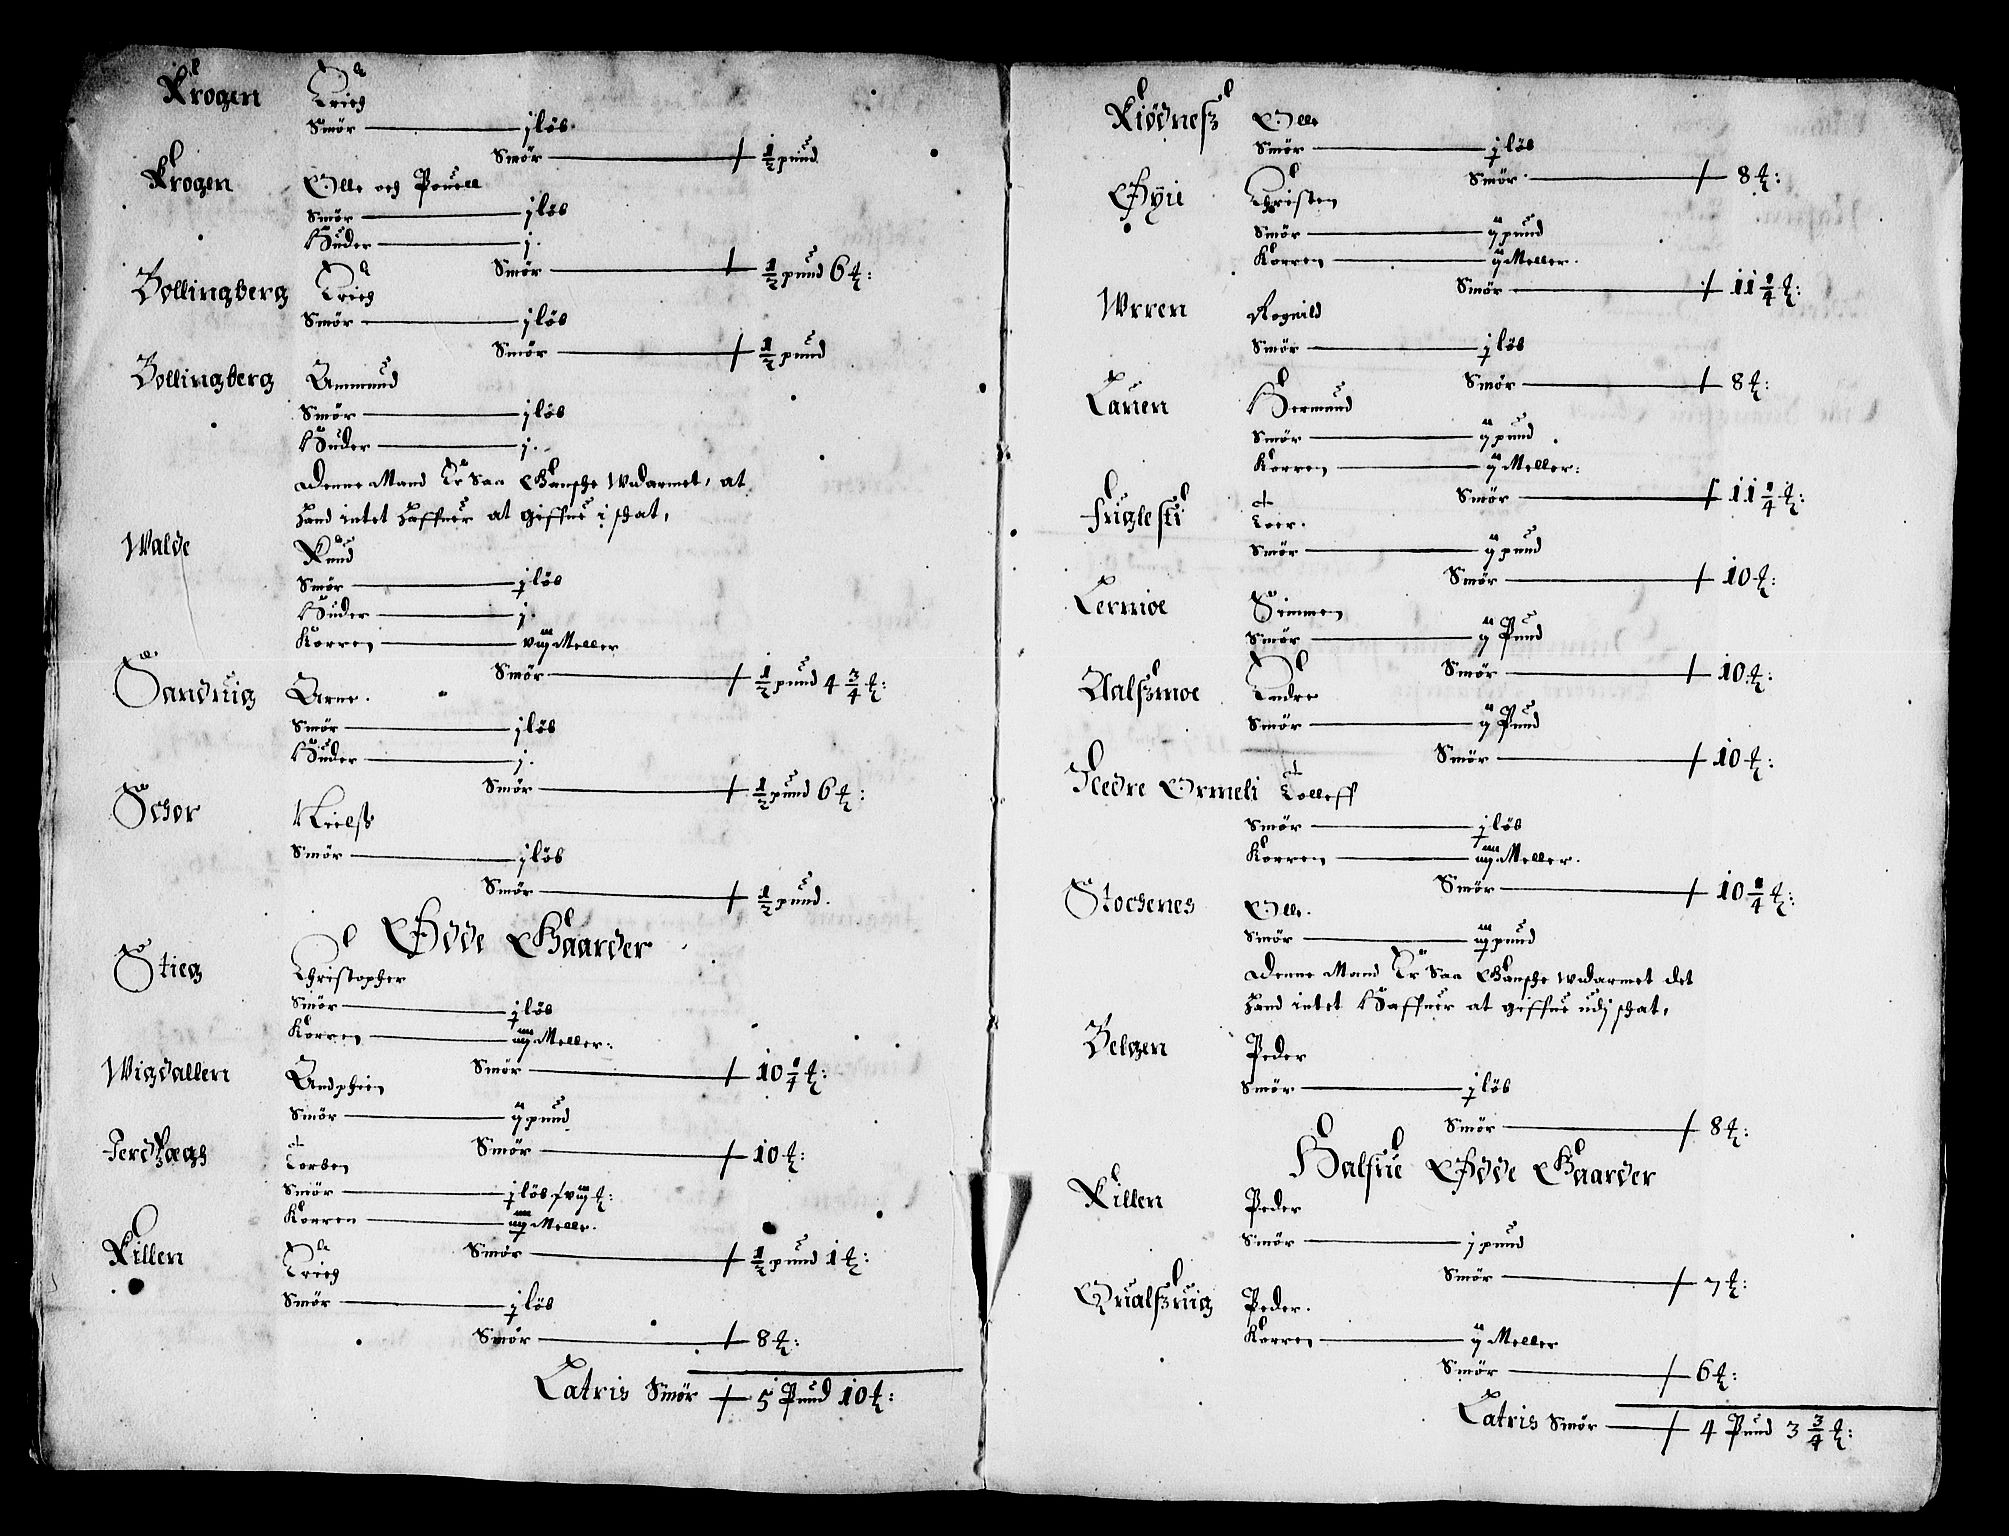 Krogen Erich
Smör — j löb.
Smör — 1/2 pund.
Krogen Olle och Pouell
Smör — j löb
Huder — j.
Smör — 1/2 pund 6 ℔:
Bollingberg Erich
Smör — j löb
Smör — 1/2 pund
Bollingberg Ammund
Smör — j löb
Huder — j.
Denne Mand Er Saa Gansche Wdarmet, at
hand intet haffuer at giffue i schat,
Walde Knud
Smör — j löb
Huder — j.
Korren — viij Meller
Smör — 1/2 pund 4 3/4 ℔:
Sanduig Arne.
Smör — j löb
Huder — j.
Smör — 1/2 pund 6 ℔:
Schor Nielß
Smör — j löb
Smör — 1/2 pund.
Ødde Gaarder
Stieg Christopher
Smör — j löb
Korren — iiij Meller:
Smör — 10 1/4 ℔:
Wigdallen Andphin
Smör — ij pund
Smör — 10 ℔:
Torben
Smör — j löb / viij ℔:
Korren — iiij Meller.
Smör — 1/2 pund 1 ℔:
Killen Erich
Smör — j löb
Smör — 8 ℔:
Latris Smör — 5 Pund 10 ℔:
Kiödneß Olle
Smör — j löb
Smör — 8 ℔:
Øyie Christen
Smör — ij pund
Korren — ij Meller.
Smör — 11 1/4 ℔:
Wrren Rognild
Smör — j löb
Smör — 8 ℔:
Lauen Hermund
Smör — ij pund
Korren — ij Meller:
Smör — 11 1/4 ℔:
Fuglesti Toer.
Smör — ij pund
Smör — 10 ℔:
Lermoe Simmen
Smör — ij Pund
Smör — 10 ℔:
Aalßmoe Endre
Smör — ij Pund
Smör — 10 ℔:
Nedre Ormeli Tolleff
Smör — j löb
Korren — iiij Meller.
Smör — 10 1/4 ℔:
Stochenes Olle.
Smör — iij pund
Denne Mand Er Saa Gansche wdarmet det
hand intet Haffuer at giffue udj schat,
Belgen Peder
Smör — j löb
Smör — 8 ℔:
Halfue Ødde Gaarder
Killen Peder
Smör — j pund
Smör — 7 ℔:
Qualßuig Peder.
Korren — ij Meller
Smör — 6 ℔:
Latris Smör — 4 Pund 3 3/4 ℔: